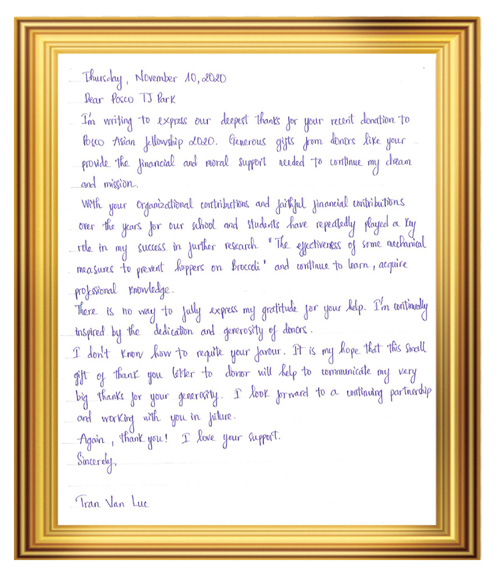 Thursday, November 10, 2020
Dear Posco TJ Park
I'm writing to express our deepest thanks for your recent donation to
Posco Asian fellowship 2020. Generous gifts from donors like your
provide the financial and moral support needed to continue my dream
and mission.
With your organizational contributions and faithful financial contributions
over the years for our school and students have repeatedly played a key
role in my success in further research. "The effectiveness of some mechanical
measures to prevent hoppers on Broccoli" and continue to learn, acquire
professional knowledge.
There is no way to fully express my gratitude for your help. I'm continually
inspired by the dedication and generosity of donors.
I don't know how to requite your favour. It is my hope that this small
gift of thank you letter to donor will help to communicate my very
big thanks for your generosity. I look forward to a continuing partnership
and working with you in future.
Again, thank you! I love your support.
Sincerely,
Tran Van Luc